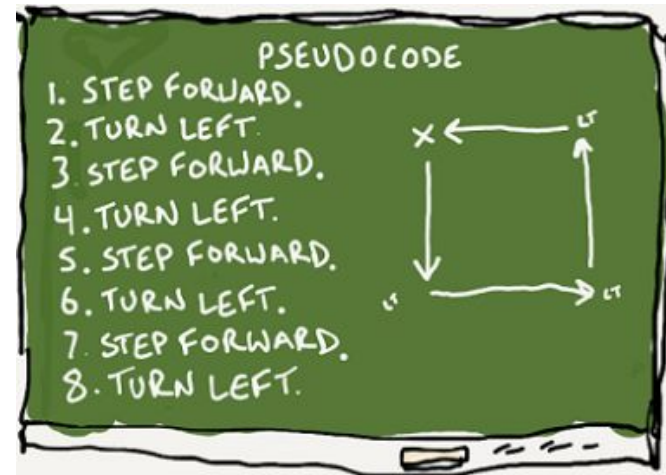 PSEUDOCODE
1. STEP FORWARD.
2. TURN LEFT.
3. STEP FORWARD.
4. TURN LEFT.
5. STEP FORWARD.
6. TURN LEFT.
7. STEP FORWARD.
8. TURN LEFT.
X
LT
LT
LT